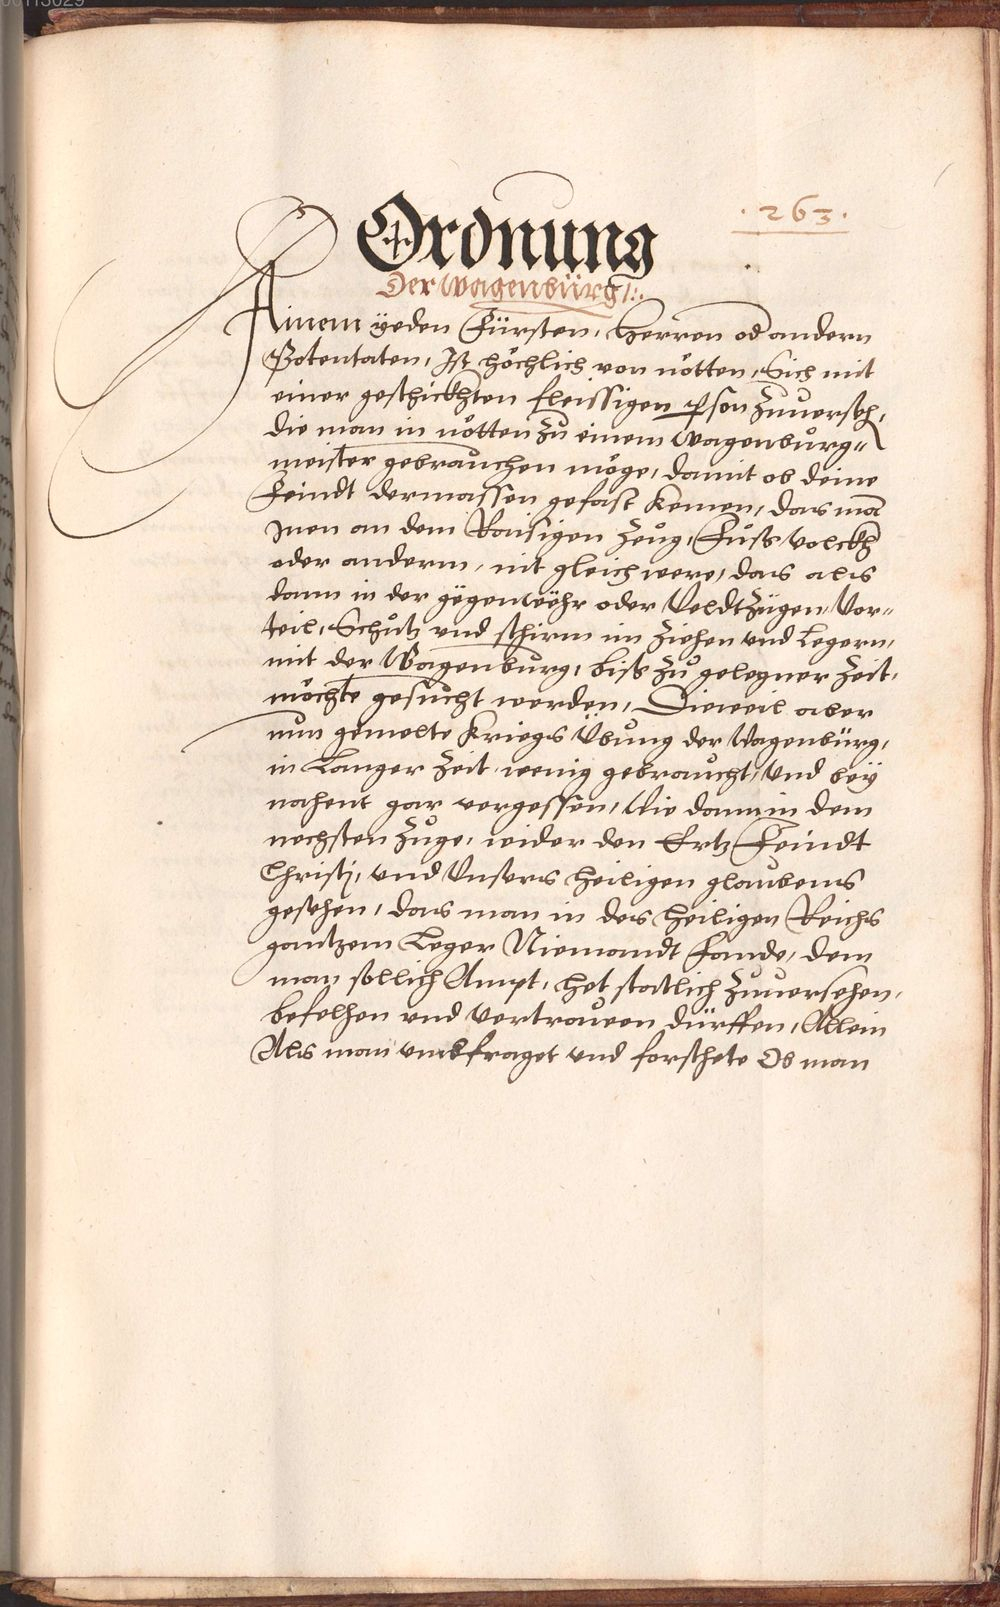 00113029
· 263 ·
Ordnung
Der Wagenbürg /:.
Ainem yeden Fürsten, Herren od andern
Potentaten, Ist höchlich von nötten, Sich mit
einer geschickhten fleissigen pson Zuuerseh,
die man in nötten Zu einem Wagenbůrg„
meister gebrauchen möge, damit ob deine
Feindt dermassen gefast kemen, das man
Inen an dem Raisigen Zeug, Fůss volckh
oder anderm, nit gleich were, das als
dann in der gegenwehr oder Veldtzügen Vor„
teil, Schůtz vnd schirm im Ziehen vnd Legern,
mit der Wagenburg, biss Zů gelegner Zeit,
möchte gesůcht werden, Dieweil aber
nun gemelte Kriegs Übung der Wagenbürg,
in Langer Zeit wenig gebraucht, Und bey
nahent gar vergessen, Wie dann in dem
nechsten Zuge, wider den Ertz Feindt
Christj, vnd Vnsers heiligen glaubens
gesehen, das man in des heiligen Reichs
gantzem Leger Niemandt Fande, dem
man sollich Ampt, het statlich Zuuersehen,
befelhen vnd vertrauen dürffen, Allein
Als man vmbfraget vnd forschete Ob man